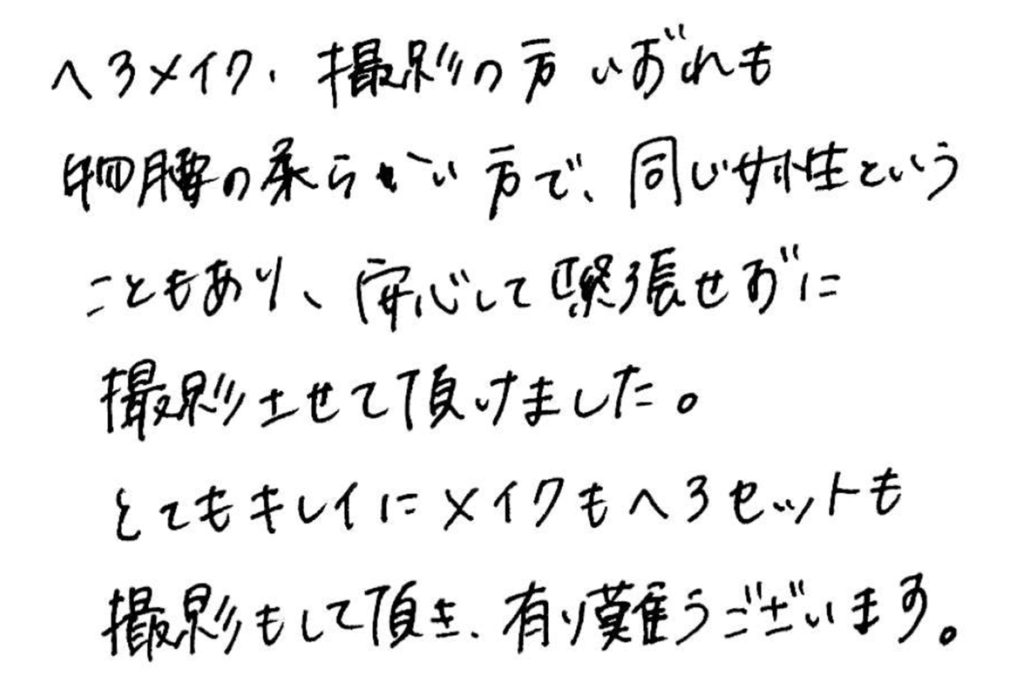 ヘアメイク、撮影の方いずれも
物腰の柔らかい方で、同じ女性という
こともあり、安心して緊張せずに
撮影させて頂けました。
とてもキレイにメイクもヘアセットも
撮影もして頂き、有り難うございます。